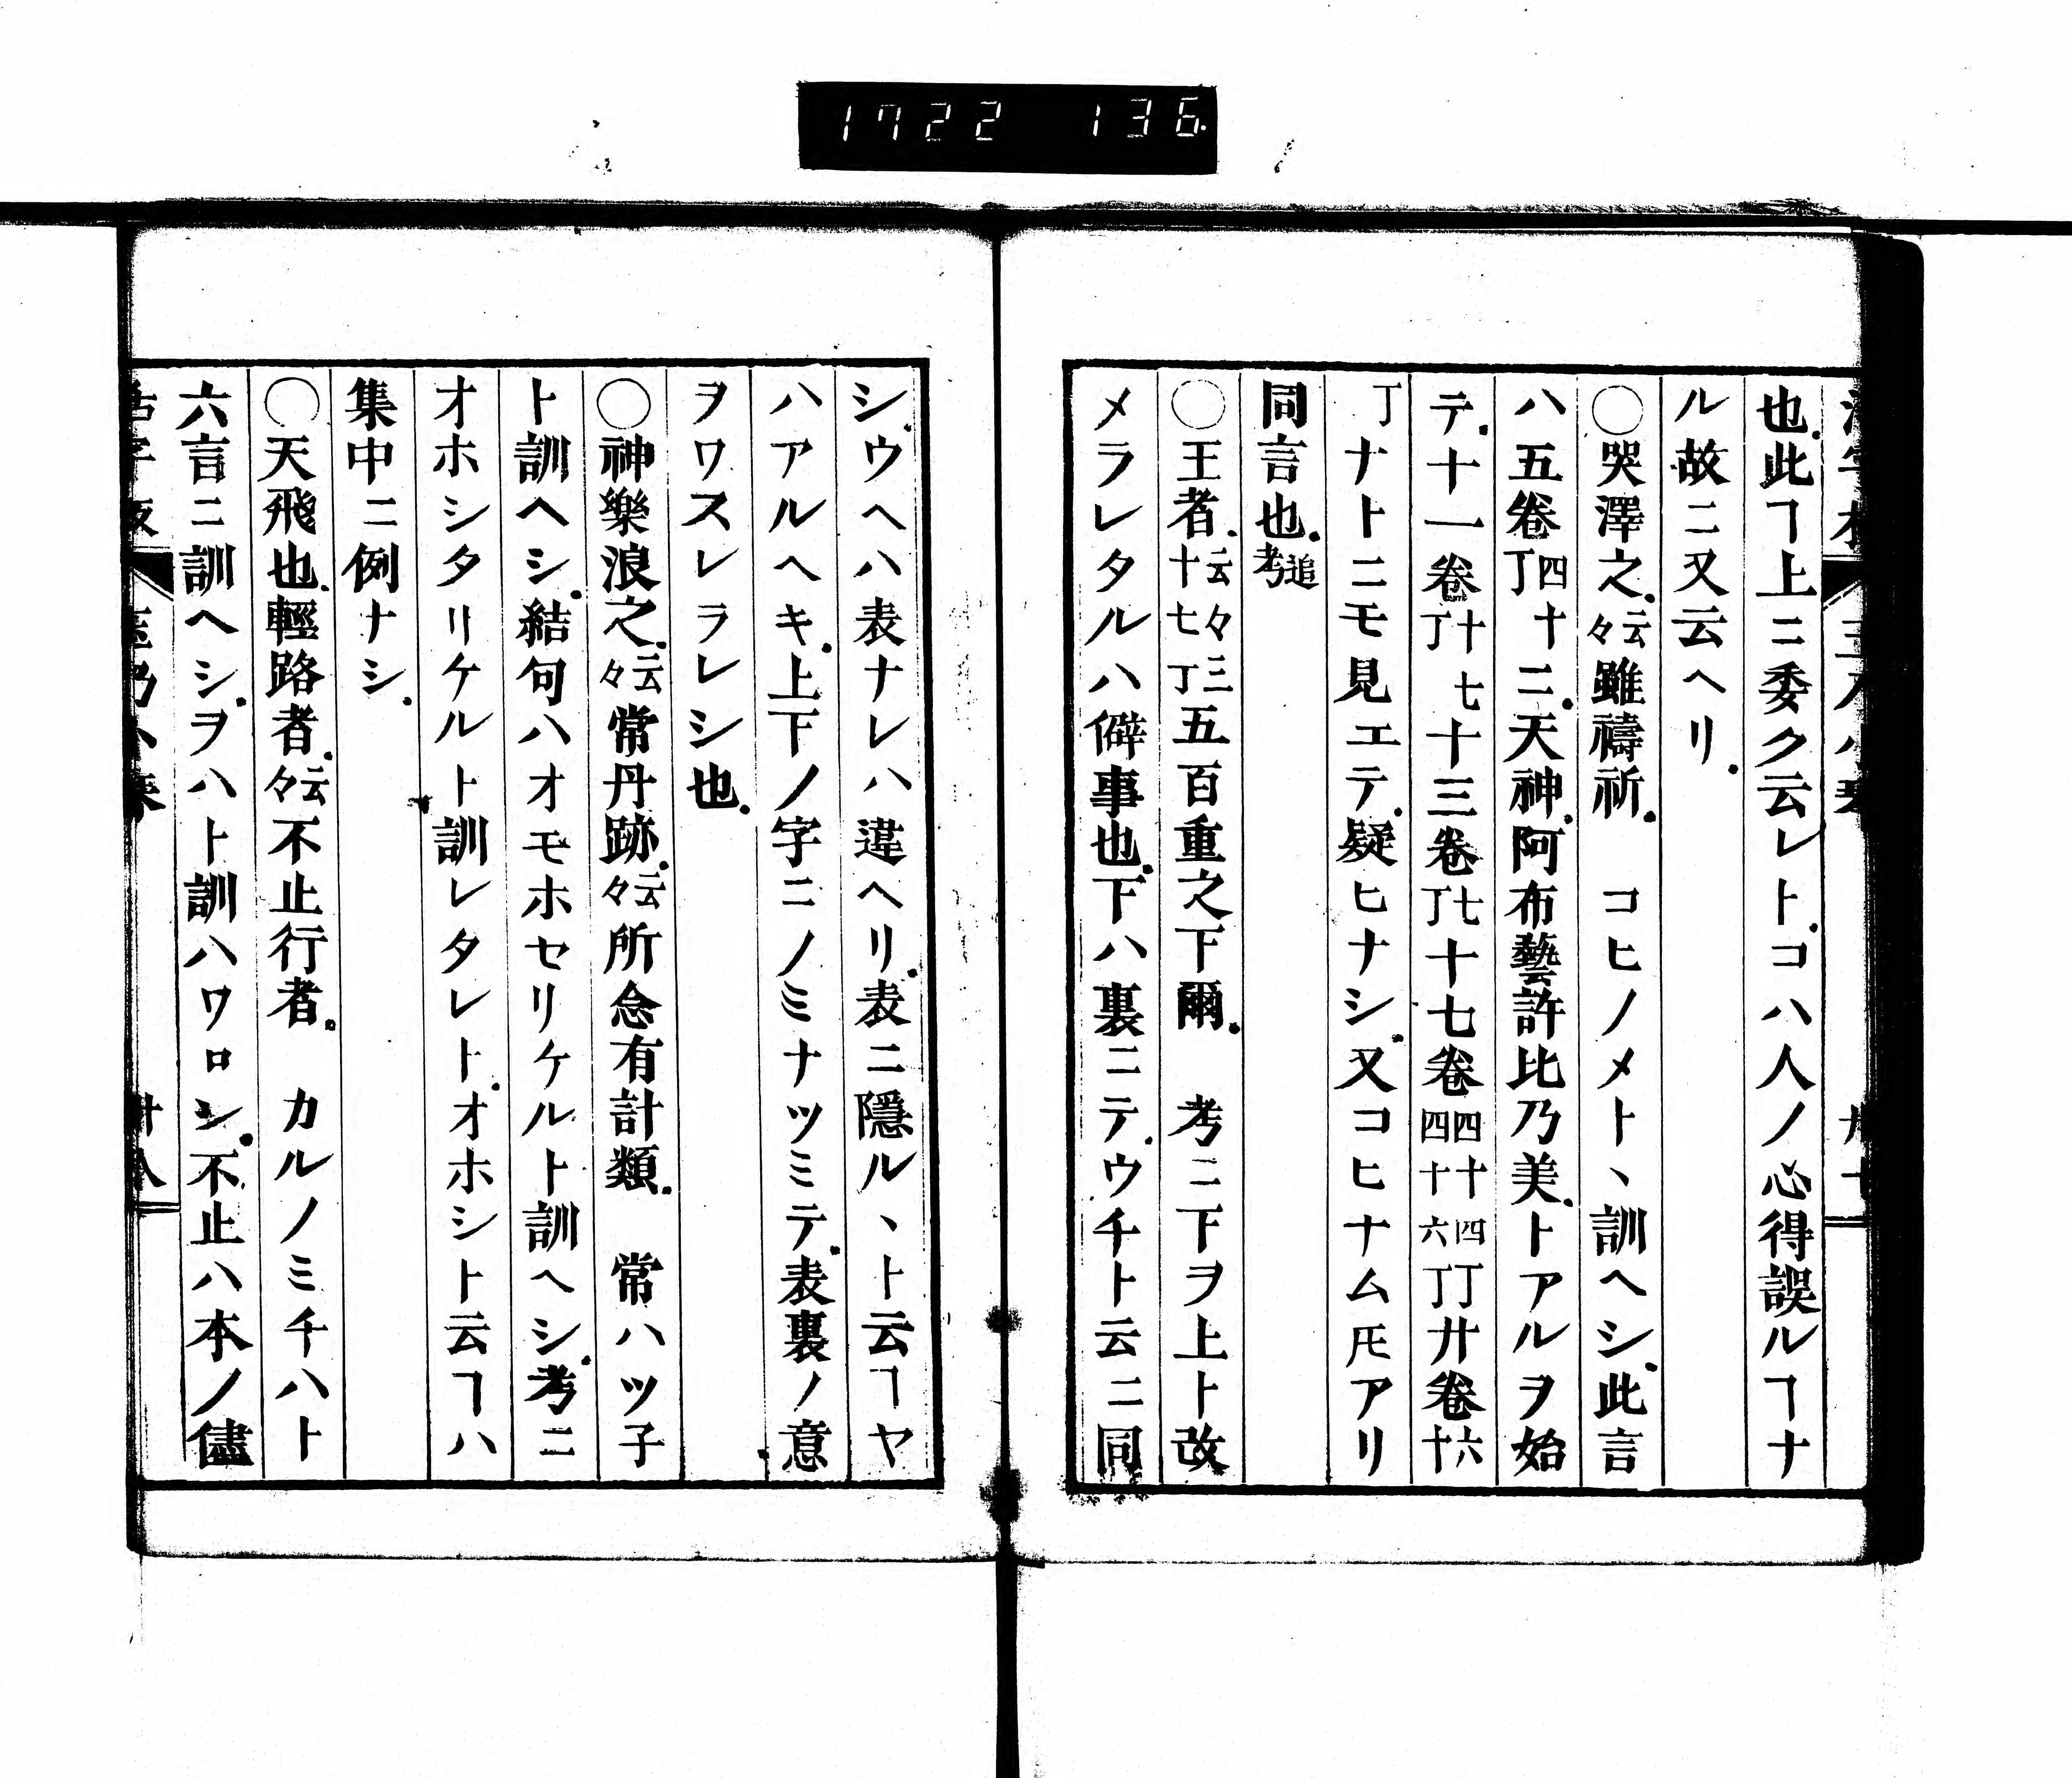 1722 136
也此ヿ上ニ委ク云レト.コハ人ノ心得誤ルヿナ
ル故ニ又云ヘリ.
○哭澤之.云々雖禱祈.　コヒノメトヽ訓ヘシ.此言
ハ五卷四十二丁.天神.阿布藝許比乃美.トアルヲ始
テ.十一卷十七丁十三卷七丁十七卷四十四丁四十六丁廿卷六十
丁ナトニモ見エテ.疑ヒナシ.又コヒナム𪜈アリ
同言也.追考
○王者.云々三十七丁五百重之下爾.　考ニ下ヲ上ト改
メラレタルハ僻事也.下ハ裏ニテ.ウチト云ニ同
シ.ウヘハ表ナレハ違ヘリ.表ニ隱ルヽト云ヿヤ
ハアルヘキ.上下ノ字ニノミナツミテ.表裏ノ意
ヲワスレラレシ也.
○神樂浪之.云々常丹跡.云々所念有計類.　常ハツ子
ト訓ヘシ.結句ハオモホセリケルト訓ヘシ.考ニ
オホシタリケルト訓レタレト.オホシト云ヿハ
集中ニ例ナシ.
○天飛也.輕路者.云々不止行者.　カルノミチハト
六言ニ訓ヘシ.ヲハト訓ハワロシ.不止ハ本ノ儘